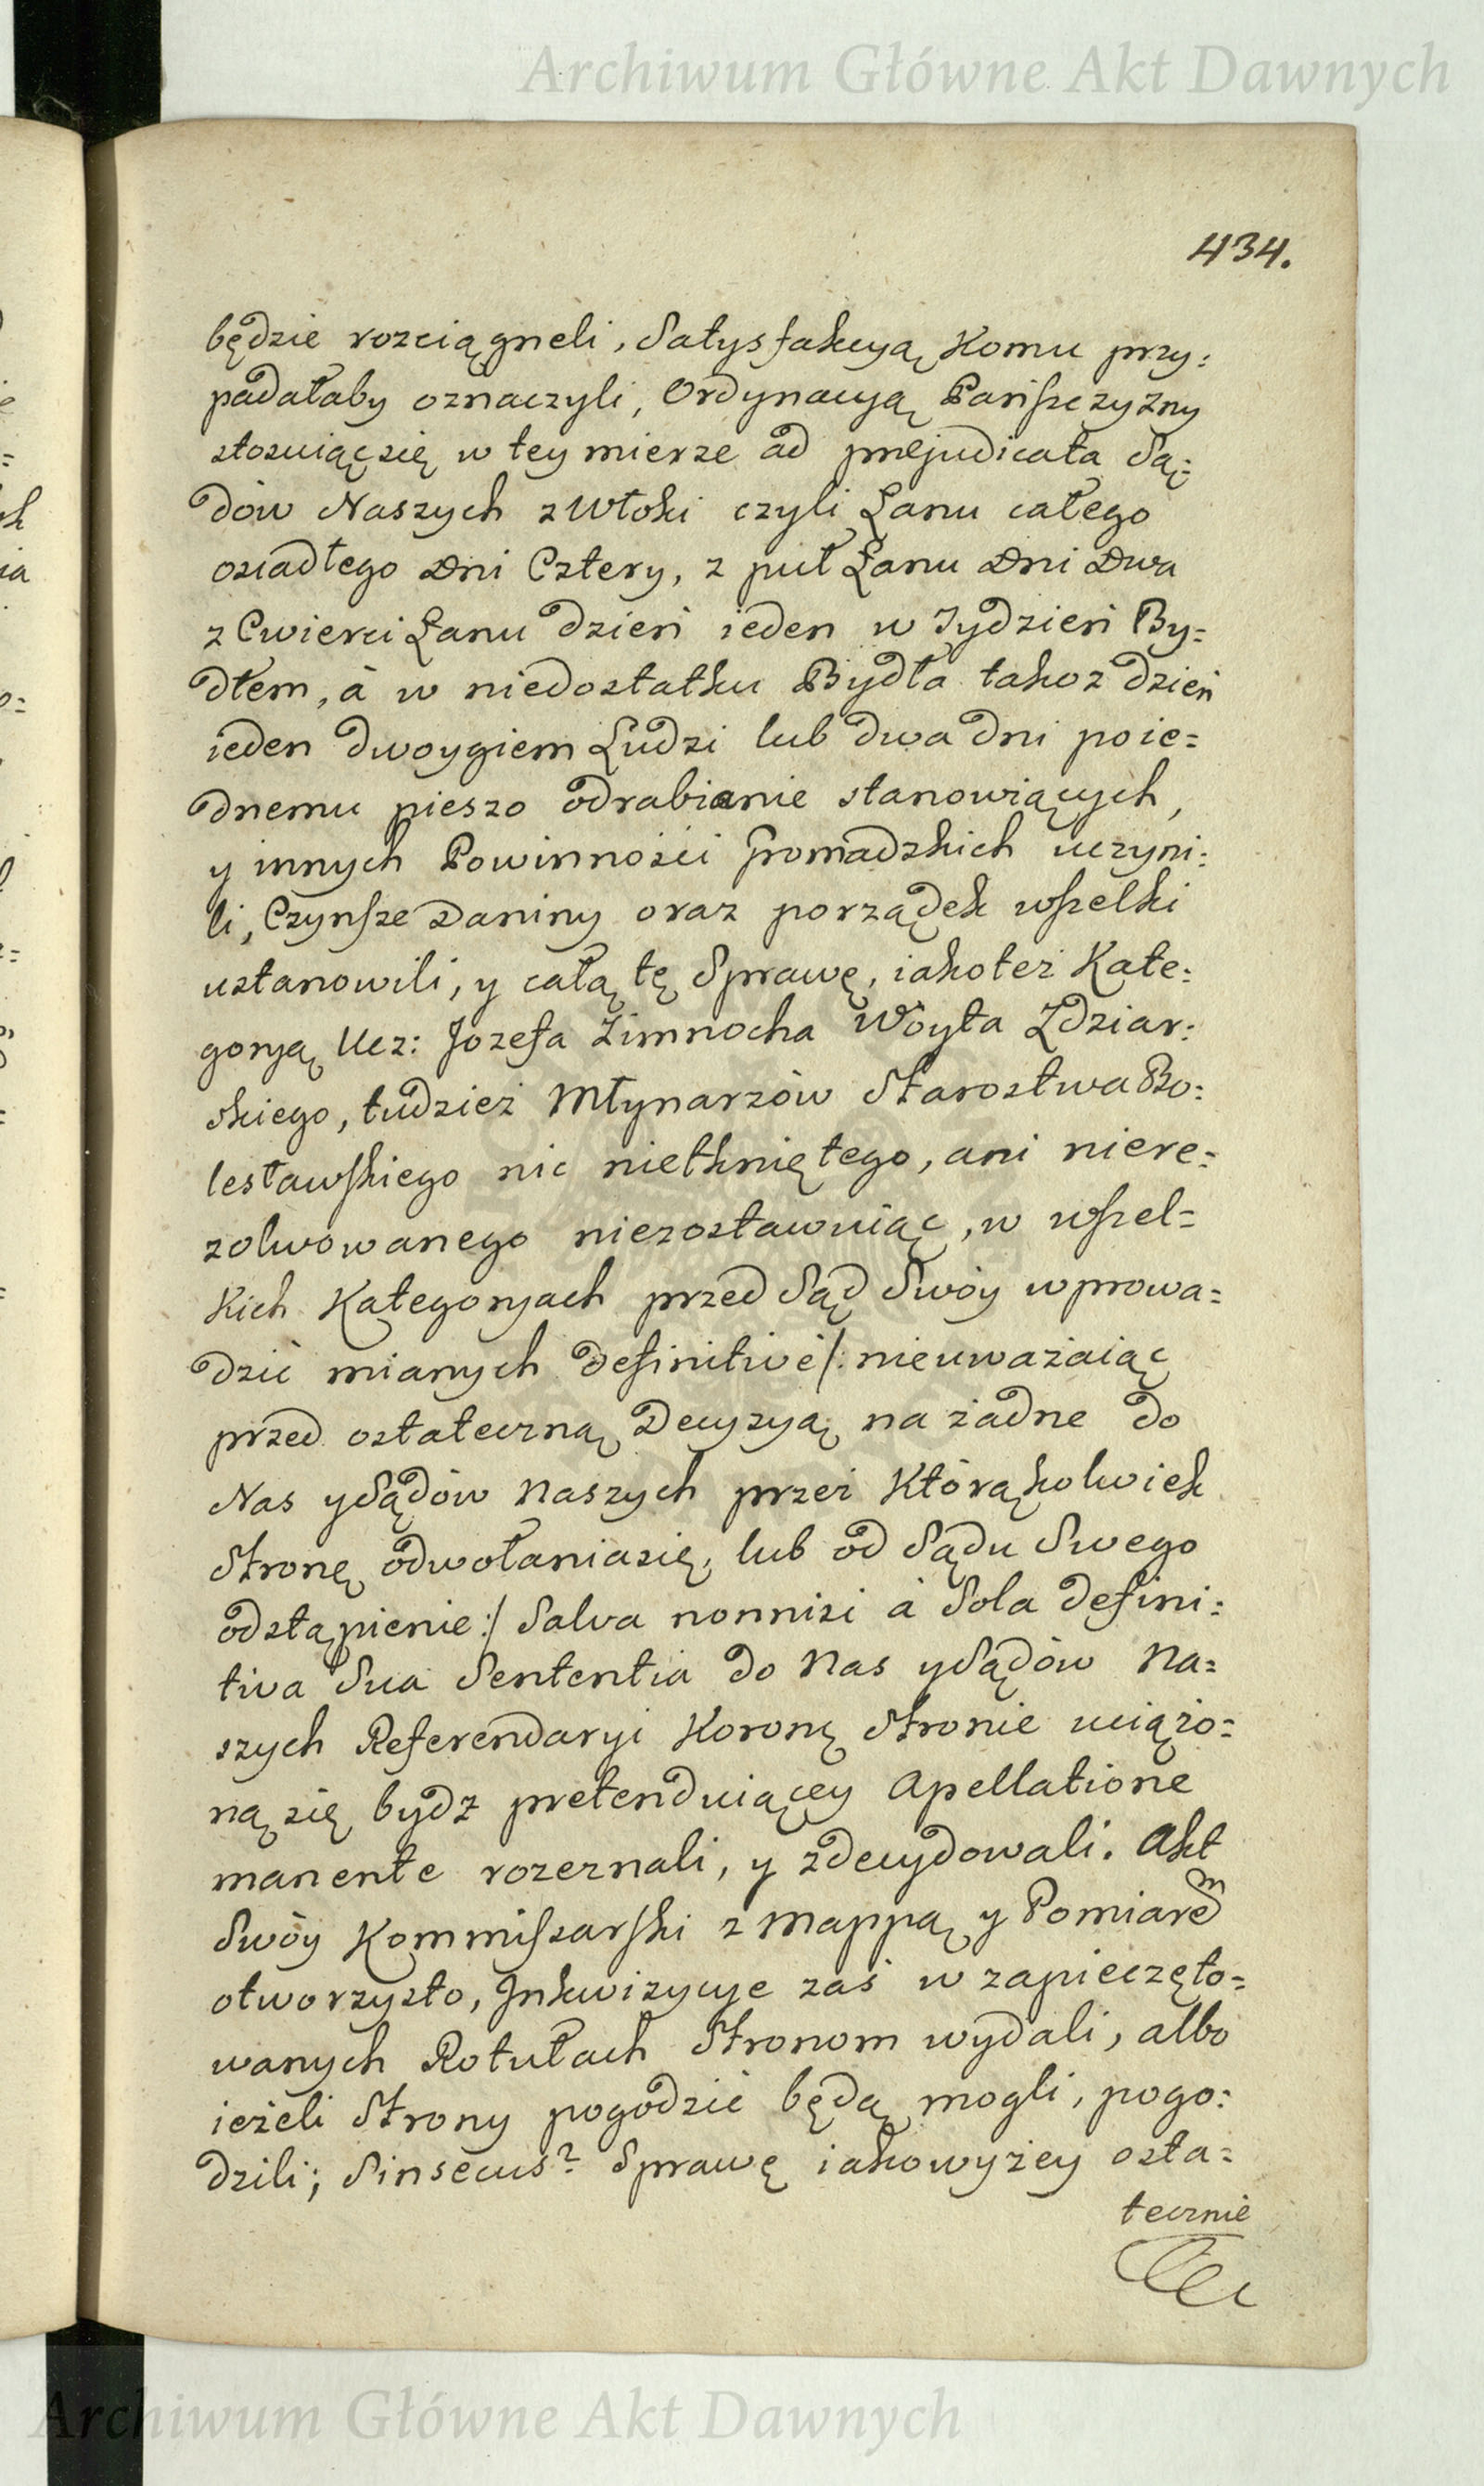 Archiwum Główne Akt Dawnych
434.
będzie rozciągneli, Satysfakcyą komu przy:
padałaby oznaczyli, Ordynacyą Pańszczyzny
stosuiącsię w tey mierze ad prejudicata Są:
dów Naszych z Włoki czyli Łanu całego
osiadłego Dni Cztery, z puł Łanu Dni Dwa
z Cwierci Łanu dzień ieden w Tydzień By=
dłem, à w niedostatku Bydła takoz dzień
ieden dwoygiem Ludzi lub dwa dni poie=
dnemu pieszo odrabianie stanowiących,
y innych Powinności Gromadzkich uczyni:
li, Czynsze Daniny oraz porządek wszelki
ustanowili, y całą tę Sprawę, iakoteż Kate:
goryą Ucz: Jozefa Zimnocha Woyta Zdziar:
skiego, tudzież Młynarzów Starostwa Bo:
lesławskiego nic nietkniętego, ani niere=
zolwowanego niezostawuiąc, w wszel=
kich Kategoryach przed Sąd Swóy wprowa=
dzić mianych definitivè /: nieuważaiąc
przed ostateczną Decyzyą na żadne do
Nas ySądów Naszych przez Którąkolwiek
Stronę odwołaniasię, lub od Sądu Swego
odstąpienie :/ Salva nonnisi à Sola defini:
tiva Sua Sententia do Nas ySądów Na=
szych Referendaryi Koronę Stronie uciążo=
ną się bydz pretenduiącey Apellatione
manente rozeznali, y zdecydowali. Akt
Swóy Kommiszarski z Mappą y Pomiarem
otworzysto, Inkwizycye zaś w zapieczęto=
wanych Rotułach Stronom wydali, albo
ieżeli Strony pogodzić będą mogli, pogo:
dzili; Sinsecus? Sprawę iakowyżey osta=
tecznie
Archiwum Główne Akt Dawnych